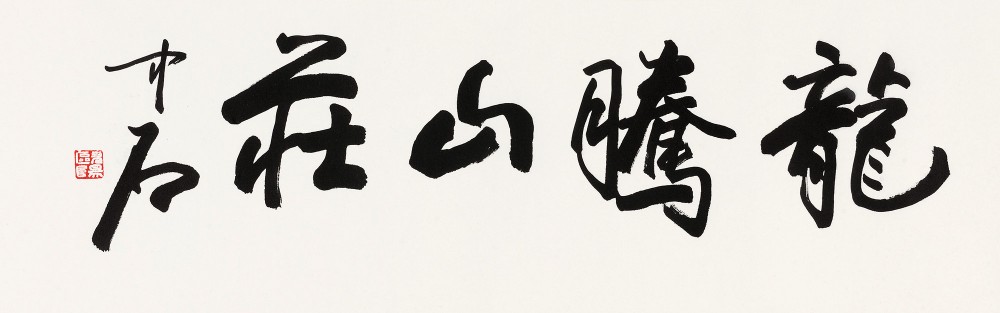 龍騰山莊
中石